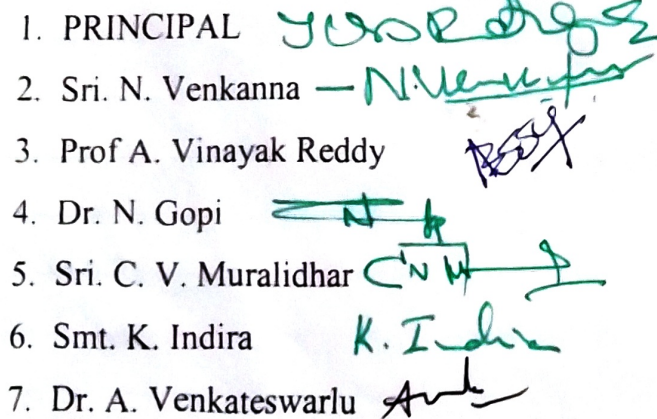 1. PRINCIPAL
2. Sri. N. Venkanna — N. Venkanna
3. Prof A. Vinayak Reddy
4. Dr. N. Gopi
5. Sri. C. V. Muralidhar
6. Smt. K. Indira K. Indira
7. Dr. A. Venkateswarlu